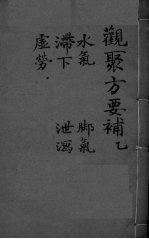 觀聚方要補乙
水氣 脚氣
滯下 泄瀉
虛勞